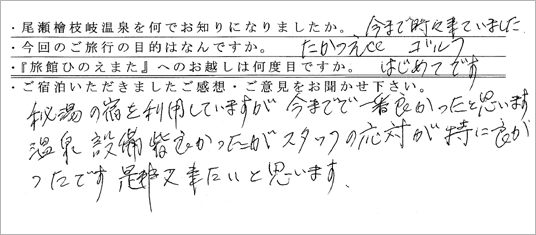 ・尾瀬檜枝岐温泉を何でお知りになりましたか。 今まで時々来ていました
・今回のご旅行の目的はなんですか。 たかつえcc ゴルフ
・『旅館ひのえまた』へのお越しは何度目ですか。 はじめてです
・ご宿泊いただきましたご感想・ご意見をお聞かせ下さい。
秘湯の宿を利用していますが 今までで一番良かったと思います
温泉 設備皆良かったがスタッフの応対が特に良か
ったです 是非又来たいと思います.